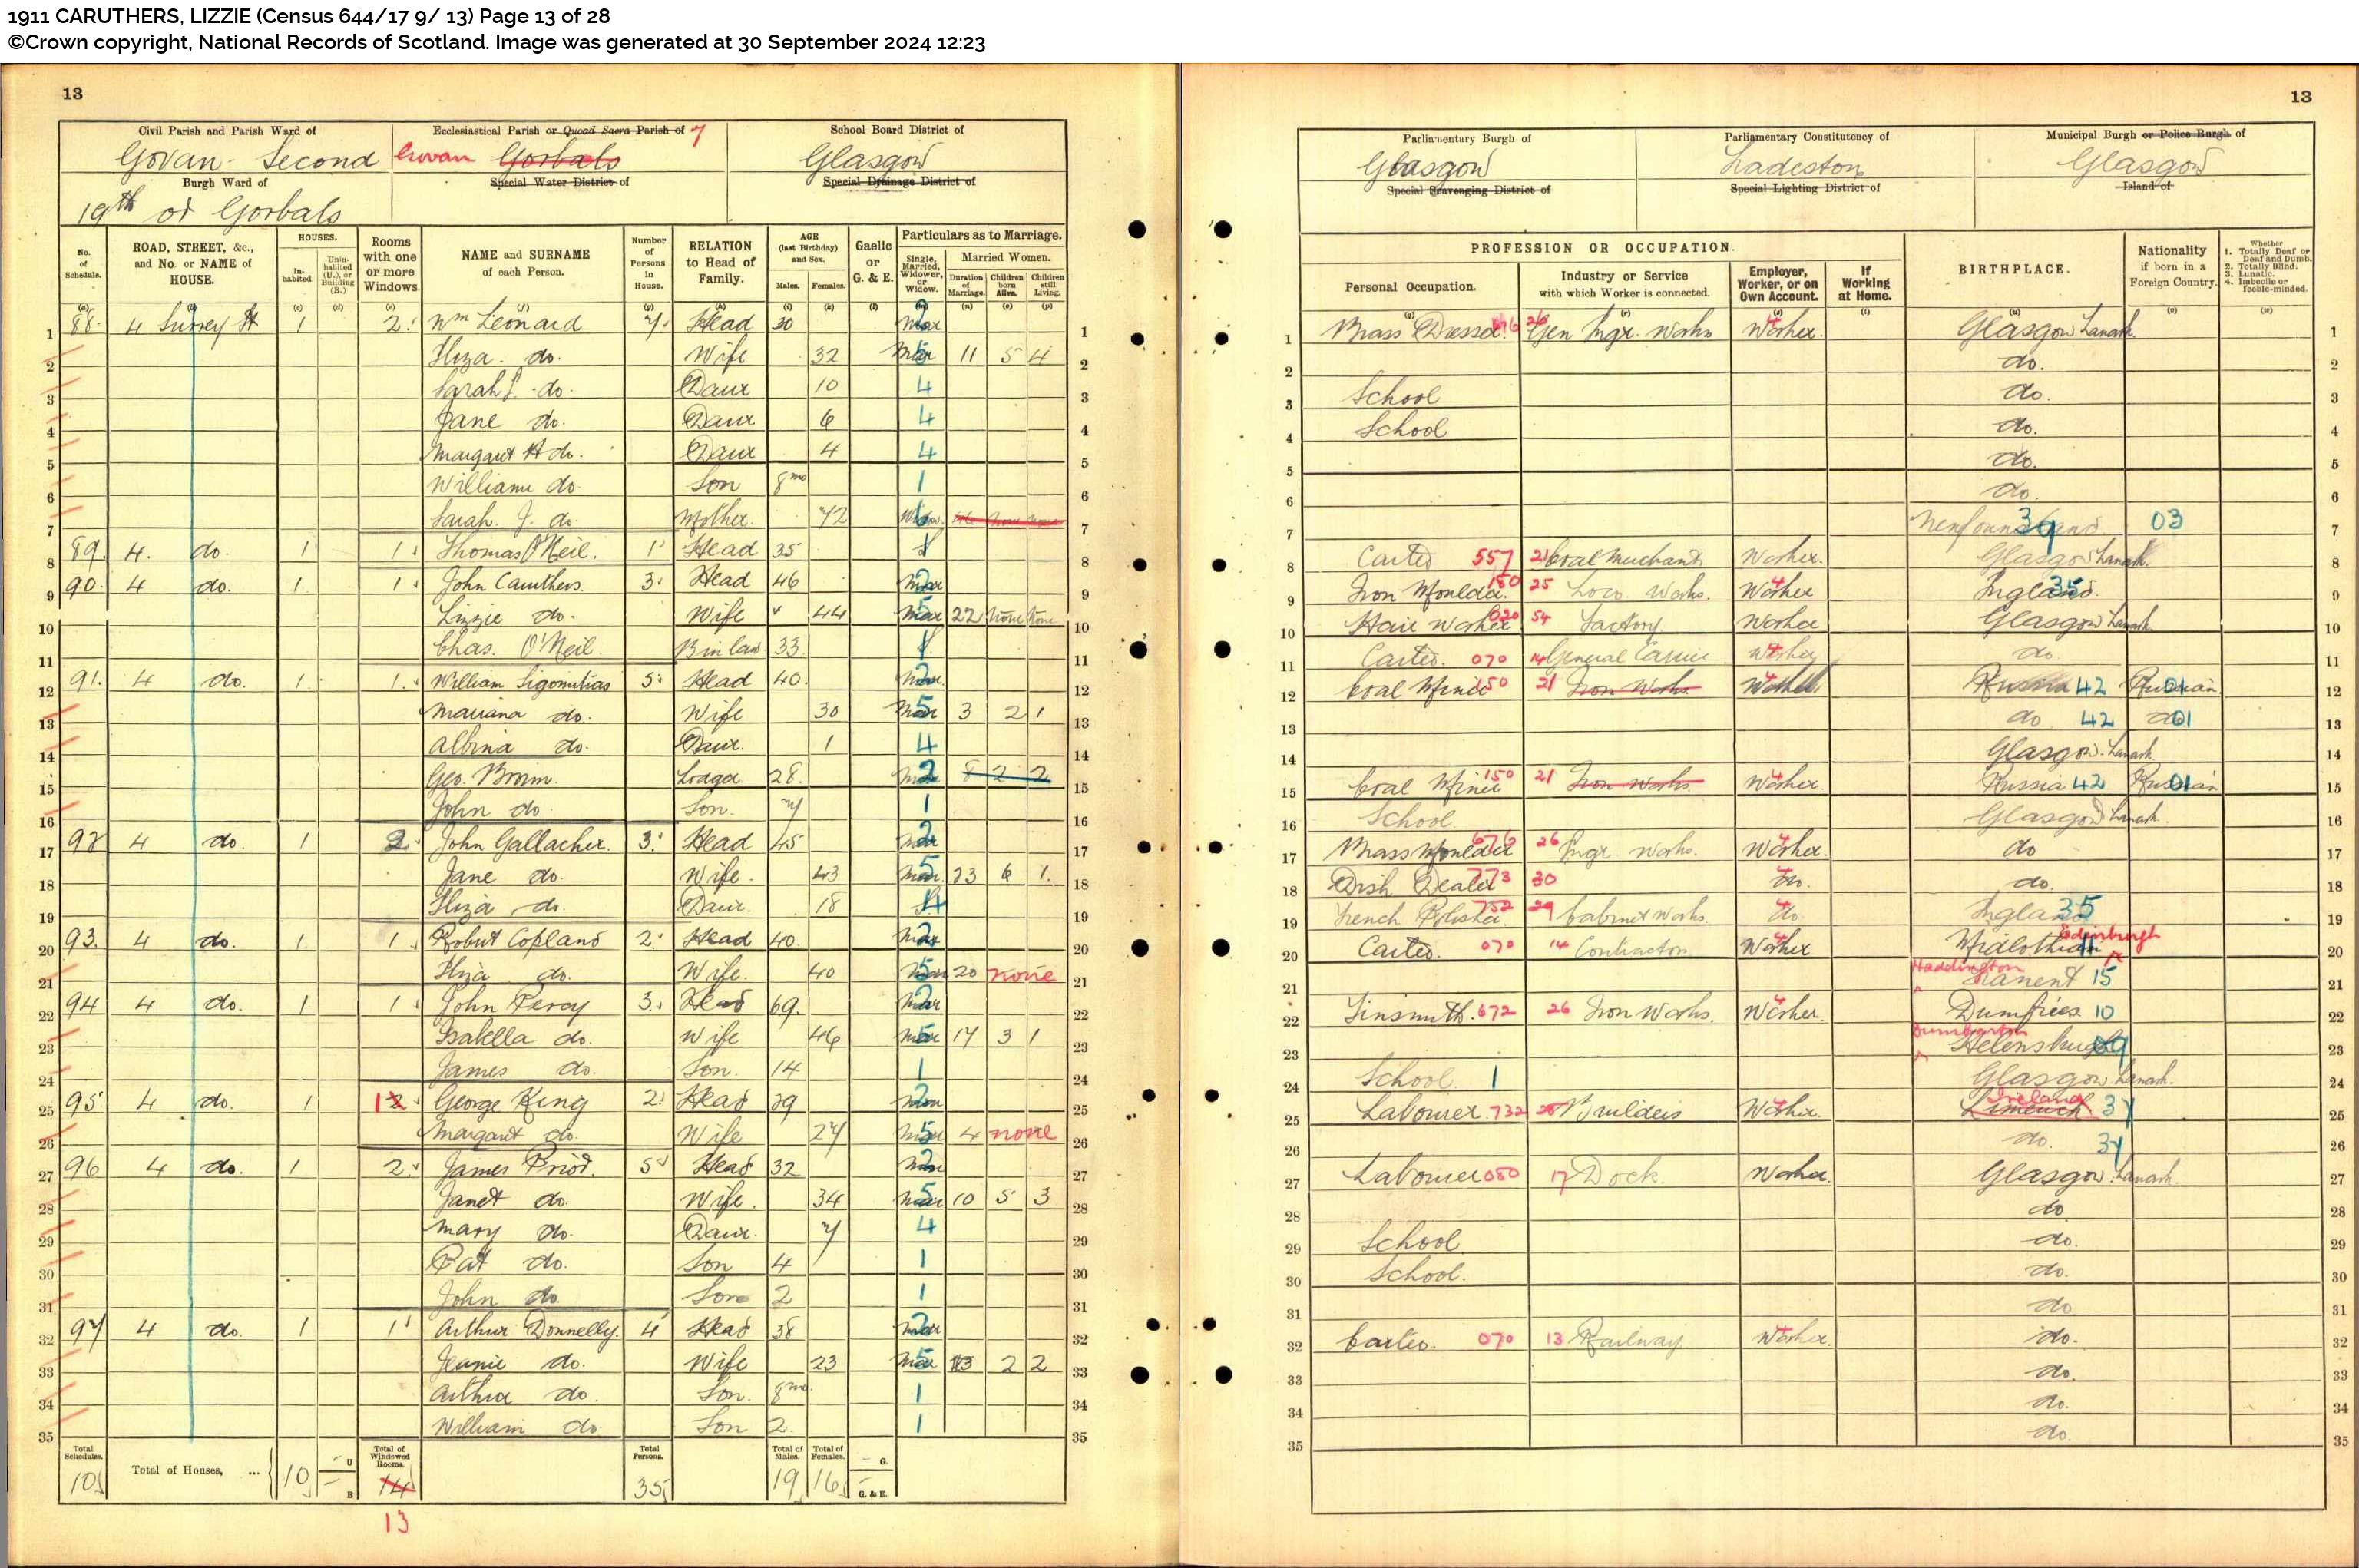 1911 CARUTHERS, LIZZIE (Census 644/17 9/ 13) Page 13 of 28
©Crown copyright, National Records of Scotland. Image was generated at 30 September 2024 12:23
13
Civil Parish and Parish Ward of
Govan - Second
Ecclesiastical Parish or Quoad Sacra Parish of 7
Govan Gorbals
School Board District of
Glasgow
Burgh Ward of
19th or Gorbals
Special Water District of
Special Drainage District of
No. of Schedule.
ROAD, STREET, &c., and No. or NAME of HOUSE.
HOUSES.
In-habited.
Unin-habited (U.), or Building (B.)
Rooms with one or more Windows.
NAME and SURNAME of each Person.
Number of Persons in House.
RELATION to Head of Family.
AGE (last Birthday) and Sex.
Males.
Females.
Gaelic or G. & E.
Particulars as to Marriage.
Single, Married, Widower, or Widow.
Married Women.
Duration of Marriage.
Children born Alive.
Children still Living.
88. 4 Surrey St 1 2 Wm Leonard 7 Head 30 Mar 2 1
2 Eliza. do. Wife 32 Mar 5 11 5 4 2
3 Sarah J. do. Daur 10 4 3
4 Jane do. Daur 6 4 4
5 Margaret H do. Daur 4 4 5
6 William do. Son 8mo 1 6
7 Sarah. J. do. Mother. 72 Widow. 6 7
89. 4. do. 1 1 Thomas O'Neil. 1 Head 35 8
90. 4 do. 1 1 John Caruthers. 3 Head 46 Mar 2 9
10 Lizzie do. Wife 44 Mar 5 22 none none 10
11 Chas. O'Neil. B in law 33. 11
91. 4 do. 1 1 William Sigomitias 5 Head 40. Mar 2 12
13 Mariana do. Wife 30 Mar 5 3 2 1 13
14 Albina do. Daur. 1 4 14
15 Geo. Brim. Lodger. 28. Mar 2 8 2 2 15
16 John do. Son. 7 1 16
92 4 do. 1 2 John Gallacher. 3 Head 45 Mar 2 17
18 Jane do. Wife. 43 Mar 5 23 6 1. 18
19 Eliza do. Daur. 18 4 19
93. 4 do. 1 1 Robert Copland 2 Head 40. Mar 2 20
21 Eliza do. Wife. 40 Mar 5 20 none 21
94 4 do. 1 1 John Percy 3 Head 69. Mar 2 22
23 Isabella do. Wife 46 Mar 5 17 3 1 23
24 James do. Son. 14 1 24
95 4 do. 1 1 George King 2 Head 29 Mar 2 25
26 Margaret do. Wife 27 Mar 5 4 none 26
96 4 do. 1 2 James Prior. 5 Head 32 Mar 2 27
28 Janet do. Wife. 34 Mar 5 10 5 3 28
29 Mary do. Daur. 7 4 29
30 Pat do. Son 4 1 30
31 John do. Son 2 1 31
97 4 do. 1 1 Arthur Donnelly. 4 Head 38 Mar 2 32
33 Jeanie do. Wife 23 Mar 5 3 2 2 33
34 Arthur do. Son. 8mo. 1 34
35 William do Son 2. 1 35
Total Schedules. 10
Total of Houses, ... 10 – U – B
Total of Windowed Rooms. 14
13
Total Persons. 35
Total of Males. 19
Total of Females. 16
– G.
– G. & E.
13
Parliamentary Burgh of
Glasgow
Parliamentary Constituency of
Tradeston
Municipal Burgh or Police Burgh of
Glasgow
Special Scavenging District of
Special Lighting District of
Island of
PROFESSION OR OCCUPATION.
Personal Occupation.
Industry or Service with which Worker is connected.
Employer, Worker, or on Own Account.
If Working at Home.
BIRTHPLACE.
Nationality if born in a Foreign Country.
Whether 1. Totally Deaf or Deaf and Dumb. 2. Totally Blind. 3. Lunatic. 4. Imbecile or feeble-minded.
1 Brass Dresser. 26 Gen Engr. Works Worker. Glasgow Lanark. 1
2 do. 2
3 School do. 3
4 School do. 4
5 do. 5
6 do. 6
7 Newfoundland 39 03 7
8 Carter 557 21 Coal Merchant Worker. Glasgow Lanark. 8
9 Iron Moulder. 25 Loco. Works. Worker 4 England. 35 9
10 Hair Worker 020 54 Factory Worker Glasgow Lanark 10
11 Carter. 070 14 General Carrier Worker do. 11
12 Coal Miner 150 21 Iron Works. Worker Russia 42 Russian 01 12
13 do 42 do 01 13
14 Glasgow. Lanark. 14
15 Coal Miner 150 21 Iron Works. Worker. 4 Russia 42 Russian 01 15
16 School. Glasgow Lanark. 16
17 Brass Moulder 676 26 Engr Works. Worker. 4 do 17
18 Dish Dealer 773 30 do. do. 18
19 French Polisher 752 29 Cabinet Works. 4 do England 35 19
20 Carter. 070 14 Contractor Worker 4 Midlothian Edinburgh 11 20
21 Haddington Tranent 15 21
22 Tinsmith. 672 26 Iron Works. Worker. 4 Dumfries 10 22
23 Dumbarton Helensburgh 09 23
24 School. 1 Glasgow Lanark. 24
25 Labourer. 732 Builders Worker. Limerick Ireland 37 25
26 do. 37 26
27 Labourer 080 17 Dock. Worker. Glasgow. Lanark. 27
28 do 28
29 School. do. 29
30 School. do. 30
31 do 31
32 Carter. 070 13 Railway Worker. do. 32
33 do. 33
34 do. 34
35 do. 35